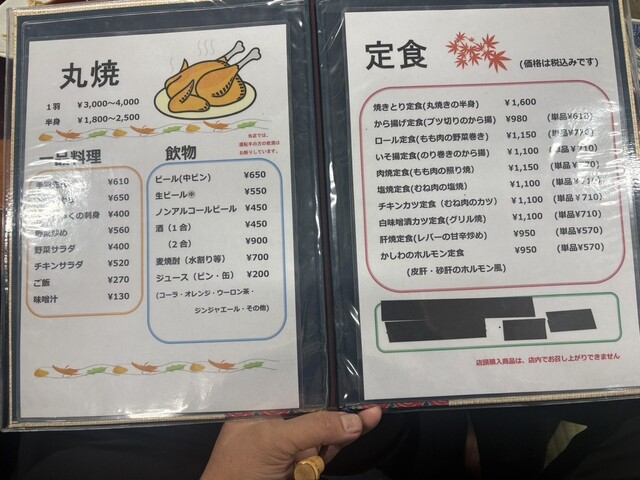 丸焼
1羽 ￥3,000～4,000
半身 ￥1,800～2,500
当店では、
運転手の方の飲酒は
お断りしています。
一品料理
￥610
￥650
くの刺身 ￥400
野菜炒め ￥560
野菜サラダ ￥400
チキンサラダ ￥520
ご飯 ￥270
味噌汁 ￥130
飲物
ビール(中ビン) ￥650
生ビール㊥ ￥550
ノンアルコールビール ￥450
酒（1合） ￥450
（2合） ￥900
麦焼酎（水割り等） ￥700
ジュース（ビン・缶） ￥200
(コーラ・オレンジ・ウーロン茶・
ジンジャエール・その他)
定食 (価格は税込みです)
焼きとり定食(丸焼きの半身) ￥1,600
から揚げ定食(ブツ切りのから揚) ￥980 (単品￥610)
ロール定食(もも肉の野菜巻き) ￥1,150 (単品￥720)
いそ揚定食(のり巻きのから揚) ￥1,100 (単品￥710)
肉焼定食(もも肉の照り焼) ￥1,150 (単品￥720)
塩焼定食(むね肉の塩焼) ￥1,100 (単品￥710)
チキンカツ定食（むね肉のカツ） ￥1,100 (単品￥710)
白味噌漬カツ定食(グリル焼) ￥1,100 (単品￥710)
肝焼定食(レバーの甘辛炒め) ￥950 (単品￥570)
かしわのホルモン定食 ￥950 (単品￥570)
(皮肝・砂肝のホルモン風)
店頭購入商品は、店内でお召し上がりできません